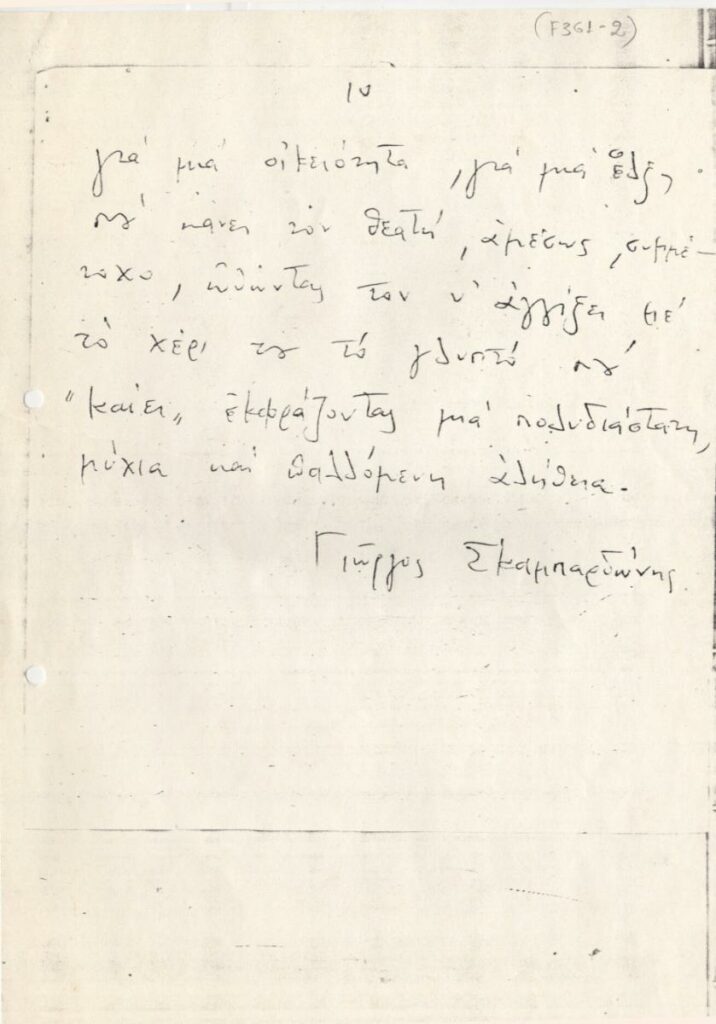 (F361-2)
10
γιά μιά οἰκειότητα, γιά μιά ἕλξη
πού κάνει τόν θεατή, ἀμέσως, συμμέ-
τοχο, ὠθώντας τον ν' ἀγγίξει μέ
τό χέρι του τό γλυπτό πού
"καίει" ἐκφράζοντας μιά πολυδιάστατη,
μύχια καί παλλόμενη ἀλήθεια.
Γιῶργος Σκαμπαρδώνης